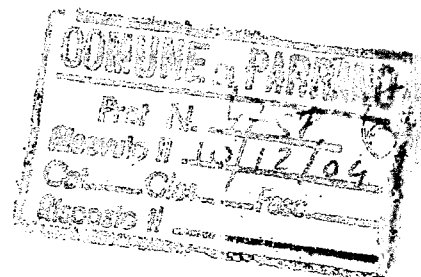 COMUNE di PARRANO
Prot. N.
Ricevuto il 10/12/04
Cat. Clas. Fasc.
Risposto il